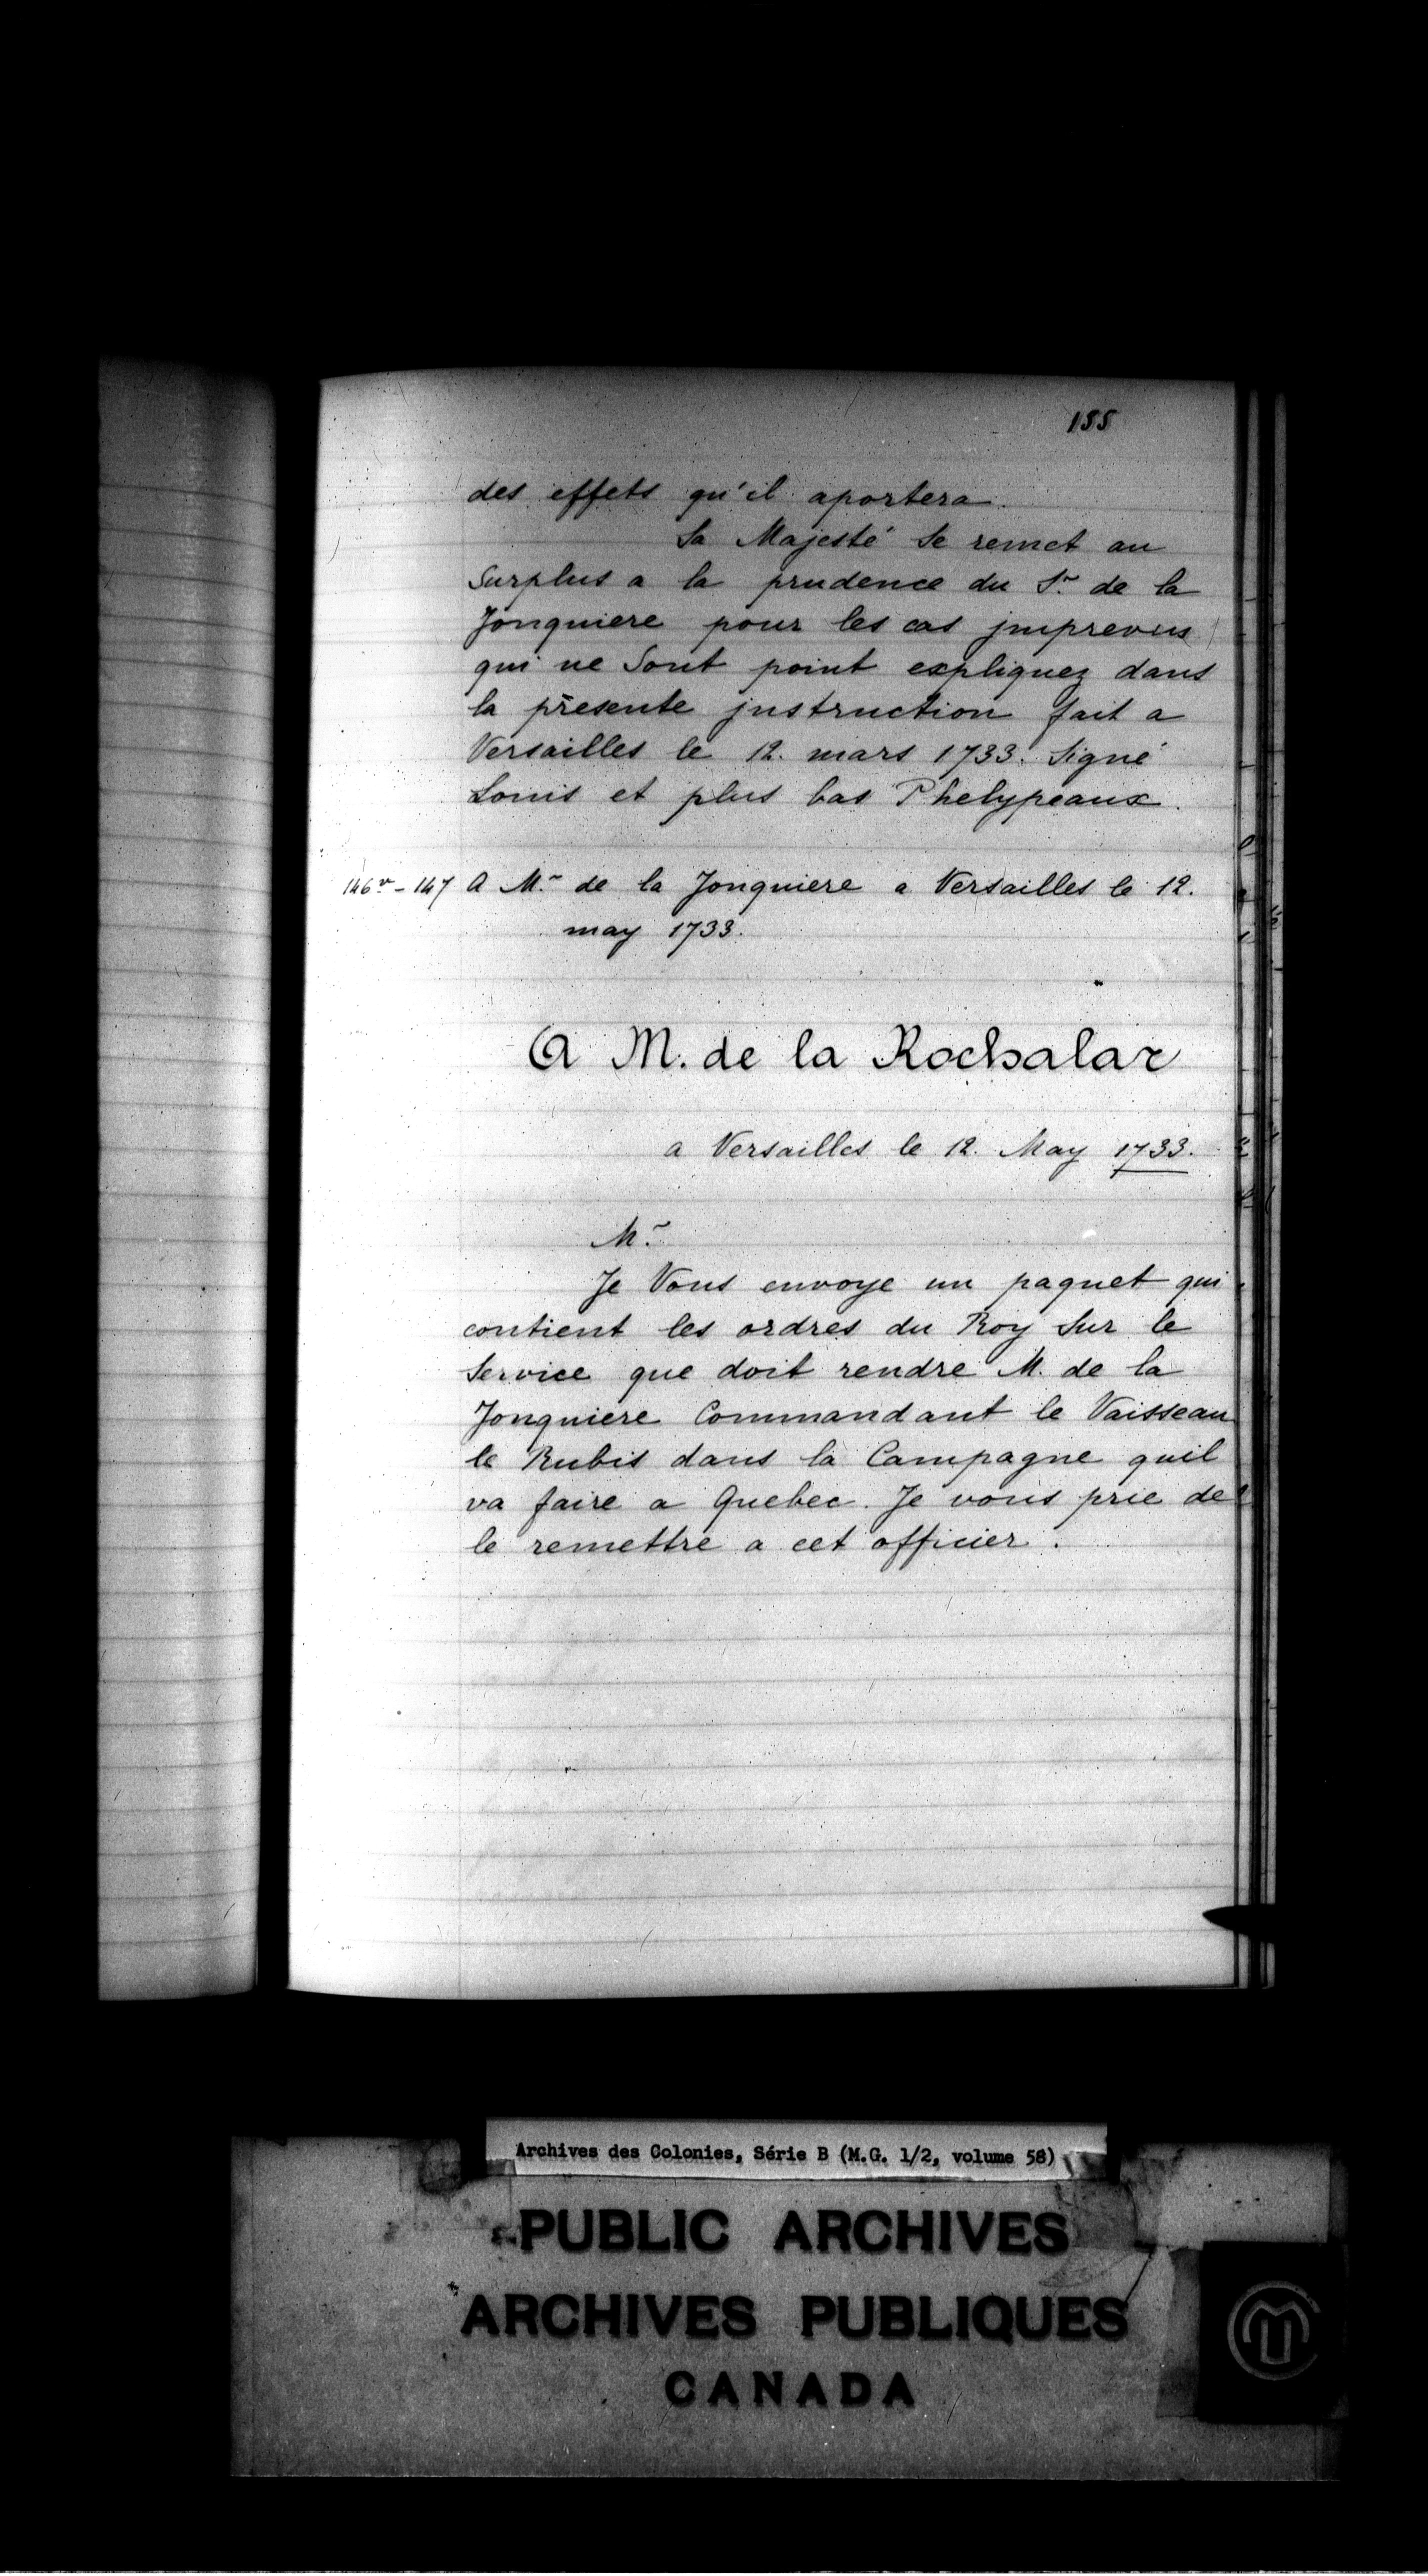 155
des effets qu'il aportera.
Sa Majesté Se remet au
Surplus a la prudence du Sr. de la
Jonquiere pour les cas jmprevus
qui ne Sont point expliquez dans
la presente jnstruction fait a
Versailles le 12. mars 1733. Signé
Louis et plus bas Phelypeaux.
146v - 147 A Mr. de la Jonquiere a Versailles le 12.
may 1733.
A M. de la Rochalar
a Versailles le 12. May 1733.
Mr.
Je Vous envoye un paquet qui
contient les ordres du Roy Sur le
Service que doit rendre M. de la
Jonquiere Commandant le Vaisseau
le Rubis dans la Campagne quil
va faire a Quebec. Je vous prie de
le remettre a cet officier.
Archives des Colonies, Série B (M.G. 1/2, volume 58)
PUBLIC ARCHIVES
ARCHIVES PUBLIQUES
CANADA